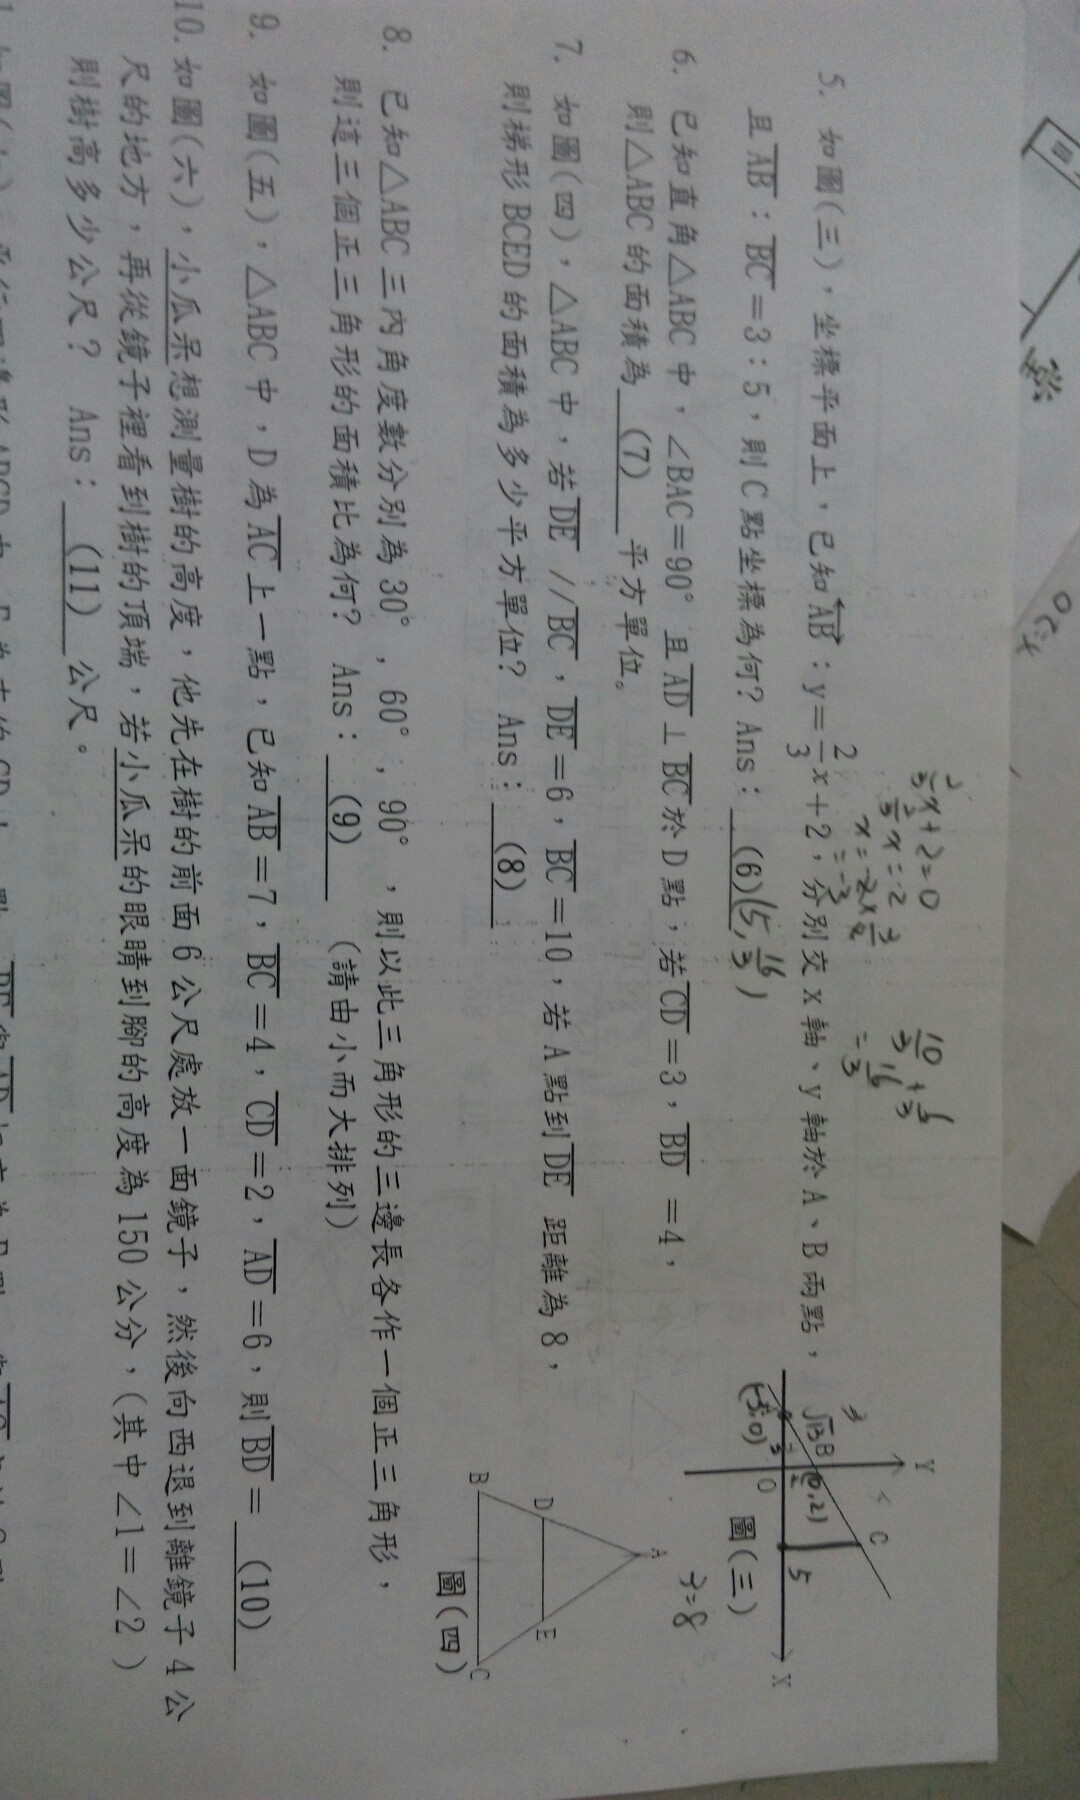 5. 如圖(三)，坐標平面上，已知AB：y=2/3x+2，分別交 x 軸、y 軸於 A、B 兩點，
且AB：BC=3：5，則C點坐標為何？Ans： (6) (5, 16/3)
6. 已知直角△ABC 中，∠BAC=90° 且AD⊥BC於 D 點，若CD=3，BD =4，
則△ABC 的面積為 (7) 平方單位。
7. 如圖(四)，△ABC 中，若DE //BC，DE=6，BC=10，若 A 點到DE 距離為 8，
則梯形BCED的面積為多少平方單位？ Ans： (8)
8. 已知△ABC 三內角度數分別為 30°，60°，90°，則以此三角形的三邊長各作一個正三角形，
則這三個正三角形的面積比為何？ Ans： (9) (請由小而大排列)
9. 如圖(五)，△ABC 中，D 為AC上一點，已知AB=7，BC=4，CD=2，AD=6，則BD= (10)
10. 如圖(六)，小瓜呆想測量樹的高度，他先在樹的前面 6 公尺處放一面鏡子，然後向西退到離鏡子 4 公
尺的地方，再從鏡子裡看到樹的頂端，若小瓜呆的眼睛到腳的高度為 150 公分，(其中∠1=∠2)
則樹高多少公尺？ Ans： (11) 公尺。
2/3x+2=0
2/3x=-2
=-3
10/3+6/3
=16/3
Y
B
√13
(0,2)
C
(-3,0)
O
5
X
圖(三)
A
D
E
B
C
圖(四)